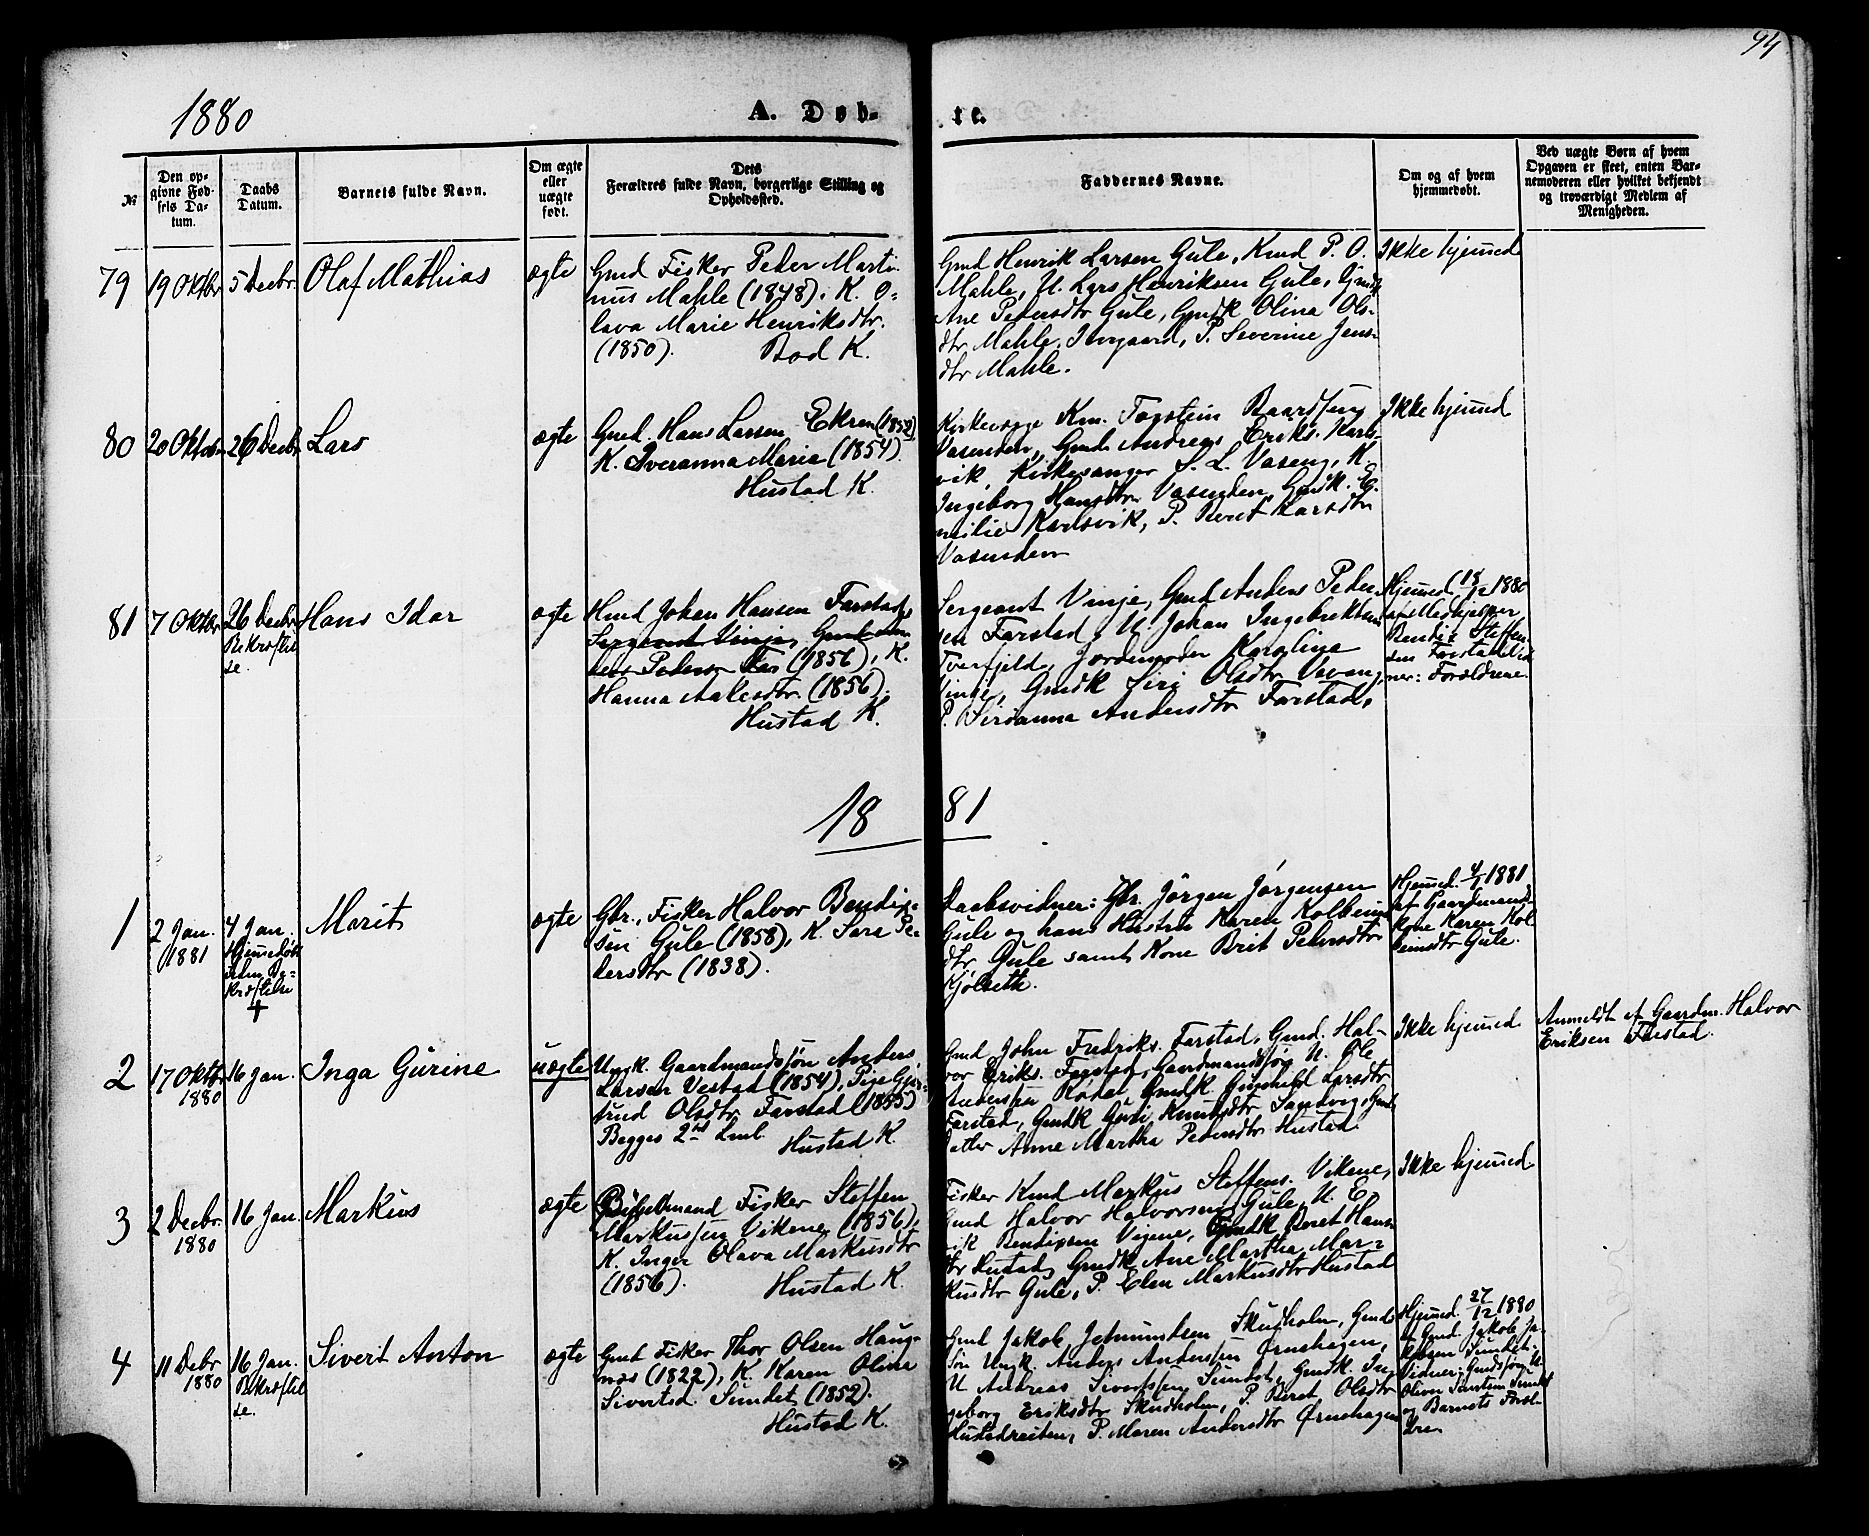 94
1880
A. Døb-
te.
№
Den op-
givne Fød-
sels Da-
tum.
Daabs
Datum.
Barnets fulde Navn.
Om ægte
eller
uægte
født.
Dets
Forældres fulde Navn, borgerlige Stilling og
Opholdssted.
Faddernes Navne.
Om og af hvem
hjemmedøbt.
Ved uægte Børn af hvem
Opgaven er skeet, enten Bar-
nemoderen eller hvilket bekjendt
og troværdigt Medlem af
Menigheden.
79
19 Oktbr
5 Decbr.
Olaf Mathias
ægte
Gmd Fisker Peder Marti-
nus Mahle (1848), K. O-
lava Marie Henriksdtr.
(1850). Bod K.
Gmd Henrik Larsen Gule, Knud P. O.
Mahle, U. Lars Henriksen Gule, Gmdk
Ane Pedersdtr Gule, Gmdk Olina Ols-
dtr Mahle, P. Severine Jens-
dtr Mahle.
Ikke hjemmed
80
20 Oktob
26 Decbr
Lars
ægte
Gmd. Hans Larsen Ekren (1858)
K. Iveranna Maria (1854).
Hustad K.
Kirkesange Km. Torstein Baardsen
Vasenden, Gmd. Andreas Eriks. Karls-
vik, Kirkesanger S. L. Vaseng, K.
Ingeborg Hansdtr Vasenden, Gmdk. E-
milie Karlsvik, P. Beret Larsdtr
Vasenden
Ikke hjemmed
81
7 Oktbr
26 Decbr
Bekræftel
se.
Hans Idar
ægte
Hmd Johan Hansen Farstad,
Sergeant Vinje, Gmd An-
ders Peders. Far (1856), K.
Hanna Aakesdtr. (1856).
Hustad K.
Sergeant Vinje, Gmd Anders Peder-
sen Farstad, U. Johan Ingebriktsen
Tverfjeld, Jordemoder Karoline
Vinje, Gmdk Siri Olsdtr Vevang,
P. Serianna Andersdtr Farstad.
Hjemmed (18/12 1880
af Medhjelper
Bendix Steffen-
sen Farstad Vid
ner: Forældrene.
18 81
1
2 Jan.
1881
4 Jan.
Hjemmedøbt
uden Be-
kræftelse
+
Marit
ægte
Gbr., Fisker Halvor Bendix-
sen Gule (1858), K. Sara Pe-
dersdtr (1838).
Daabsvidner: Gbr. Jørgen Jørgensen
Gule og hans Hustru Karen Kolbeins
dtr. Gule samt Kone Brit Pedersdtr
Kjølseth.
Hjemmed. 4/1 1881
af Gaardmands-
kone Karen Kol
beinsdtr Gule.
2
17 Oktbr
1880
16 Jan.
Inga Gurine
uægte
Ungk. Gaardmandssøn Anders
Larsen Vestad (1854), Pige Gjer-
trud Olsdtr Farstad (1855)
Begges 2det Lml.
Hustad K.
Gmd John Fredriks. Farstad, Gmd. Hal-
vor Eriks. Farstad, Gaardmandssøn U. Ole
Andersen Rødal, Gmdk. Gunhild Larsdtr
Farstad, Gmdk Guri Knudsdtr Sandvig, Gmd
datter Anne Martha Pedersdtr Hustad.
Ikke hjemmed
Anmeldt af Gaardm. Halvor
Eriksen Farstad.
3
2 Decbr.
1880
16 Jan.
Markus
ægte
Bygselmand Fisker Steffen
Markussen Vikene (1856),
K. Inger Olava Markusdtr
(1856). Hustad K.
Fisker Knud Markus Steffens. Vikene,
Gmd Halvor Halvorsen Gule, U. E-
rik Bendixsen Vigene, Gmdk Beret Hans-
dtr Hustad, Gmdk Ane Martha Mar-
kusdtr Gule, P. Elen Markusdtr Hustad
Ikke hjemmed
4
11 Debr
1880
16 Jan.
Bekræftel
se.
Sivert Anton
ægte
Gmd Fisker Thor Olsen Haug-
næs (1822), K. Karen Olina
Sivertsd. Sundet (1852).
Hustad K.
Gmd Jakob Jetmundsen Skudholm, Gmds
søn Ungk. Anders Andersen Ørnehagen,
U Andreas Sivertsen Sundet, Gmdk In-
geborg Eriksdtr Skudholm, P. Beret Olsdtr
Hustadreiten, P. Maren Andersdtr Ørnehagen
Hjemmed. 27/12 1880
af Gmd. Jakob Ja-
kobsen Sundet.
Vidner: Gmdssøn U
Oliver Sundet
og Barnets Foræl-
dre